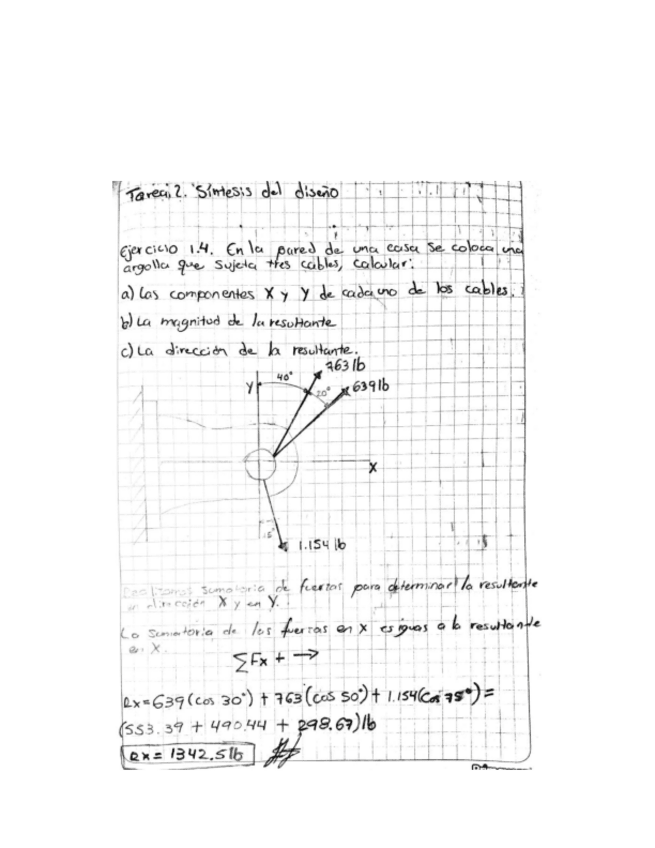 Tarea 2. Síntesis del diseño
Ejercicio 1.4. En la pared de una casa se coloca una
argolla que sujeta tres cables, calcular:
a) Las componentes X y Y de cada uno de los cables.
b) La magnitud de la resultante
c) La dirección de la resultante.
763 lb
40°
Y
20°
639 lb
X
15°
1.154 lb
Realizamos sumatoria de fuerzas para determinar la resultante
en dirección X y en Y.
La sumatoria de las fuerzas en X es igual a la resultante
en X.
ΣFx + →
Rx=639(cos 30°) + 763(cos 50°) + 1.154(cos 75°) =
(553.39 + 490.44 + 298.67)lb
Rx = 1342.5 lb